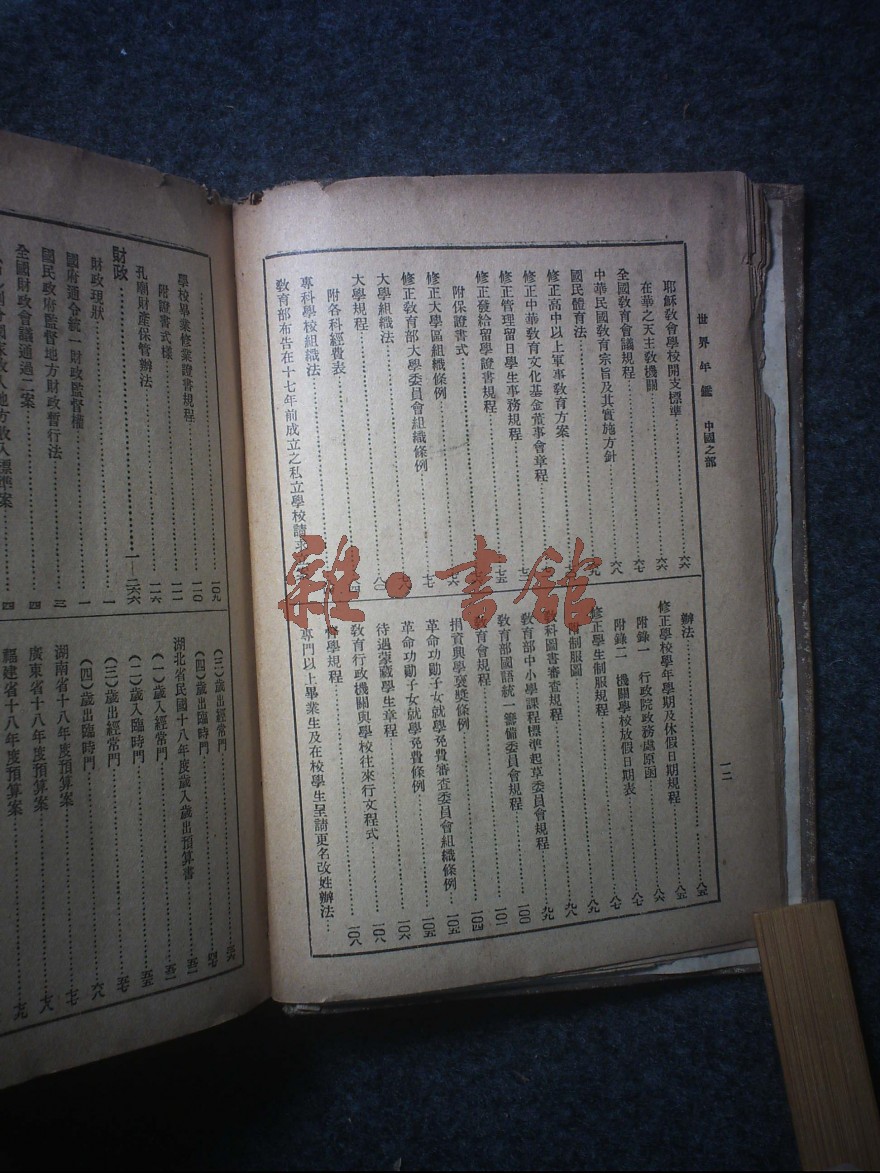 世界年鑑 中國之部
一二
耶穌敎會學校開支標準……六六
在華之天主敎機關……六六
全國敎育會議規程……六七
中華民國敎育宗旨及其實施方針……六八
國民體育法
修正高中以上軍事敎育方案
修正中華敎育文化基金董事會章程
修正管理留日學生事務規程……七五
修正發給留學證書規程
附保證書式
修正大學區組織條例
修正敎育部大學委員會組織條例
大學組織法
大學規程
附各科經費表
專科學校組織法
敎育部布告在十七年前成立之私立學校請
辦法……八五
修正學校學年學期及休假日期規程……八五
附錄一 行政院政務處原函……八六
附錄二 機關學校放假日期表……八七
修正學生制服規程……八七
制服圖……八九
敎科圖書審查規程……九八
敎育部中小學課程標準起草委員會規程……九九
敎育部國語統一籌備委員會規程……一〇〇
敎育會規程……一〇一
捐資興學褒獎條例……一〇四
革命功勛子女就學免費審查委員會組織條例……一〇五
革命功勛子女就學免費條例……一〇五
待遇蒙藏學生章程……一〇六
敎育行政機關與學校往來行文程式……一〇八
學規程……一〇八
專門以上畢業生及在校學生呈請更名改姓辦法……
……一〇九
學校畢業修業證書規程……一一〇
附證書式樣……一一一
孔廟財產保管辦法……一一六
財政……一—二六六
財政現狀……一
國府通令統一財政監督權……一
國民政府監督地方財政暫行法……三
全國財政會議通過二案……四
(三)歲出經常門
(四)歲出臨時門
湖北省民國十八年度歲入歲出預算書……五一
(一)歲入經常門……五一
(二)歲入臨時門……五五
(三)歲出經常門……五七
(四)歲出臨時門……六八
湖南省十八年度預算案……七七
廣東省十八年度預算案……七八
福建省十八年度預算案……七九
雜·書館